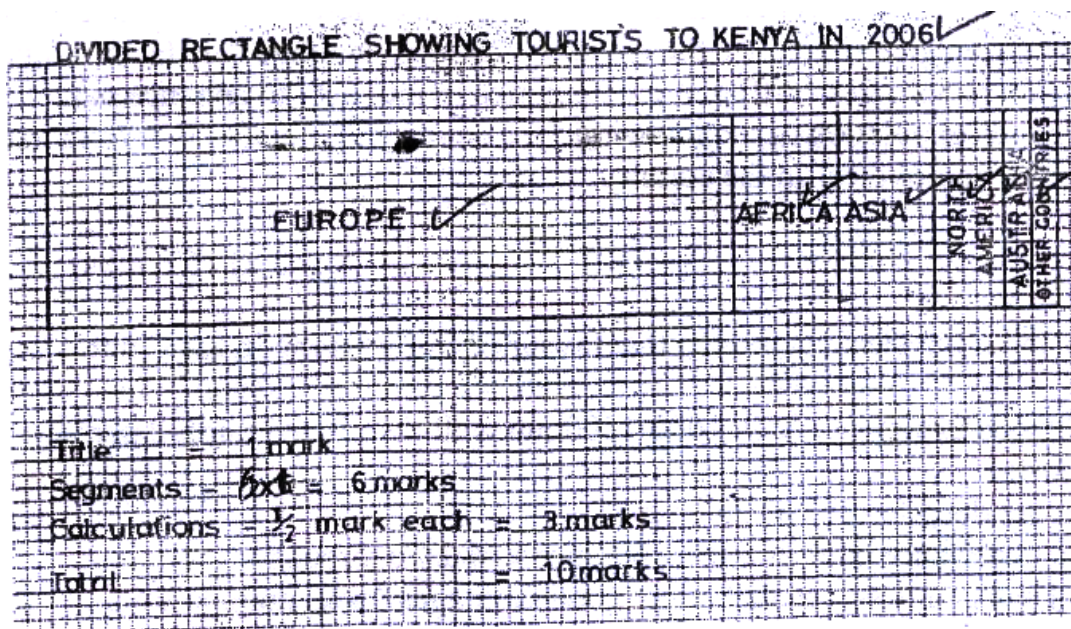 DIVIDED RECTANGLE SHOWING TOURISTS TO KENYA IN 2006
EUROPE
AFRICA
ASIA
NORTH
AMERICA
AUSTRALIA
OTHER COUNTRIES
Title = 1 mark
Segments = = 6 marks
Calculations = ½ mark each = 3 marks
Total = 10 marks